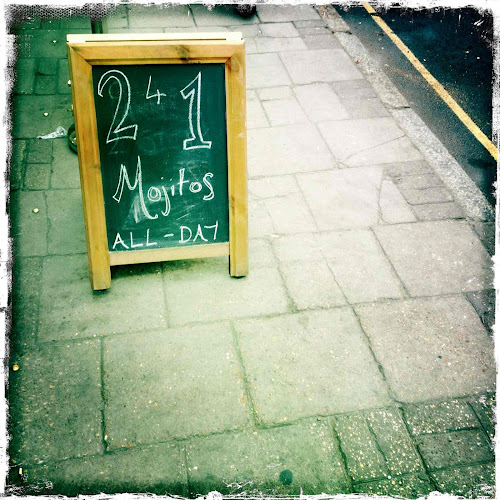 2 4 1
Mojitos
ALL-DAY